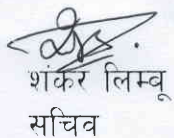 शंकर लिम्बू
सचिव